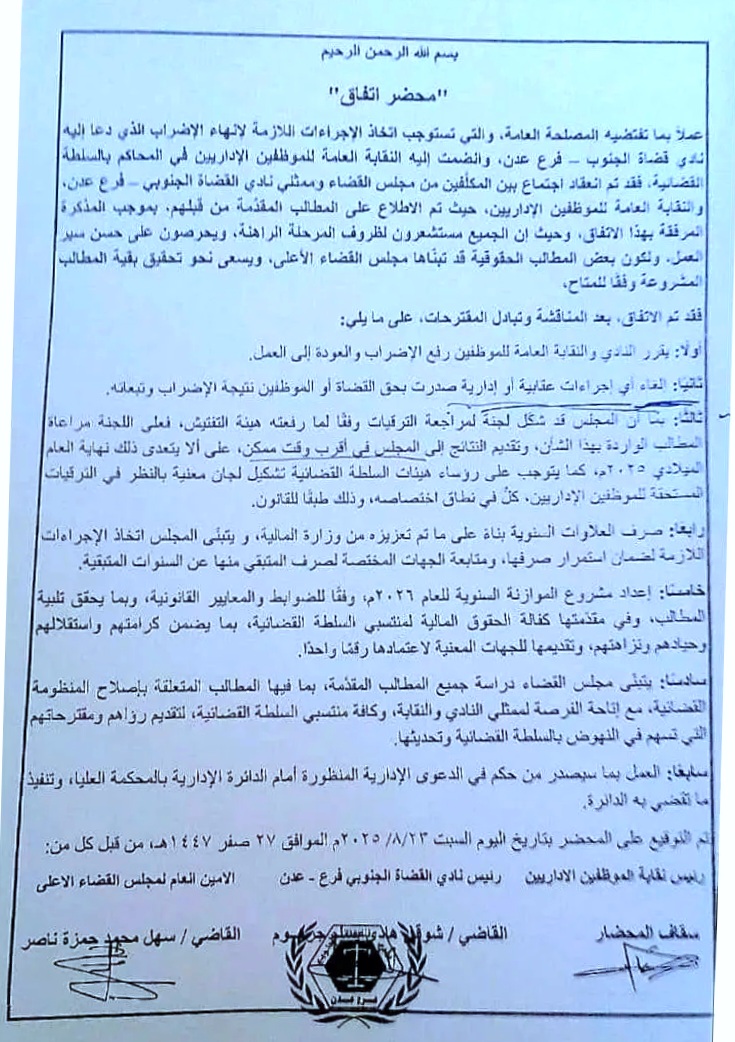 بسم الله الرحمن الرحيم
"محضر اتفاق"
عملاً بما تقتضيه المصلحة العامة، والتي تستوجب اتخاذ الإجراءات اللازمة لإنهاء الإضراب الذي دعا إليه
نادي قضاة الجنوب – فرع عدن، وانضمت إليه النقابة العامة للموظفين الإداريين في المحاكم بالسلطة
القضائية، فقد تم انعقاد اجتماع بين المكلفين من مجلس القضاء وممثلي نادي القضاة الجنوبي – فرع عدن،
والنقابة العامة للموظفين الإداريين، حيث تم الاطلاع على المطالب المقدّمة من قبلهم، بموجب المذكرة
المرفقة بهذا الاتفاق، وحيث إن الجميع مستشعرون لظروف المرحلة الراهنة، ويحرصون على حسن سير
العمل، ولكون بعض المطالب الحقوقية قد تبنّاها مجلس القضاء الأعلى، ويسعى نحو تحقيق بقية المطالب
المشروعة وفقًا للمتاح،
فقد تم الاتفاق، بعد المناقشة وتبادل المقترحات، على ما يلي:
أولًا: يقرر النادي والنقابة العامة للموظفين رفع الإضراب والعودة إلى العمل.
ثانيًا: الغاء أي إجراءات عقابية أو إدارية صدرت بحق القضاة أو الموظفين نتيجة الإضراب وتبعاته.
ثالثًا: بما أن المجلس قد شكّل لجنة لمراجعة الترقيات وفقًا لما رفعته هيئة التفتيش، فعلى اللجنة مراعاة
المطالب الواردة بهذا الشأن، وتقديم النتائج إلى المجلس في أقرب وقت ممكن، على ألا يتعدى ذلك نهاية العام
الميلادي ٢٠٢٥م، كما يتوجب على رؤساء هيئات السلطة القضائية تشكيل لجان معنية بالنظر في الترقيات
المستحقة للموظفين الإداريين، كلٌ في نطاق اختصاصه، وذلك طبقًا للقانون.
رابعًا: صرف العلاوات السنوية بناءً على ما تم تعزيزه من وزارة المالية، و يتبنّى المجلس اتخاذ الإجراءات
اللازمة لضمان استمرار صرفها، ومتابعة الجهات المختصة لصرف المتبقي منها عن السنوات المتبقية.
خامسًا: إعداد مشروع الموازنة السنوية للعام ٢٠٢٦م، وفقًا للضوابط والمعايير القانونية، وبما يحقق تلبية
المطالب، وفي مقدّمتها كفالة الحقوق المالية لمنتسبي السلطة القضائية، بما يضمن كرامتهم واستقلالهم
وحيادهم ونزاهتهم، وتقديمها للجهات المعنية لاعتمادها رقمًا واحدًا.
سادسًا: يتبنّى مجلس القضاء دراسة جميع المطالب المقدّمة، بما فيها المطالب المتعلقة بإصلاح المنظومة
القضائية، مع إتاحة الفرصة لممثلي النادي والنقابة، وكافة منتسبي السلطة القضائية، لتقديم رؤاهم ومقترحاتهم
التي تسهم في النهوض بالسلطة القضائية وتحديثها.
سابعًا: العمل بما سيصدر من حكم في الدعوى الإدارية المنظورة أمام الدائرة الإدارية بالمحكمة العليا، وتنفيذ
ما تقضي به الدائرة.
تم التوقيع على المحضر بتاريخ اليوم السبت ٢٠٢٥/٨/٢٣م الموافق ٢٧ صفر ١٤٤٧هـ، من قبل كل من:
رئيس نقابة الموظفين الاداريين رئيس نادي القضاة الجنوبي فرع - عدن الامين العام لمجلس القضاء الاعلى
سقاف المحضار القاضي / شوقي هادي القاضي / سهل محمد حمزة ناصر
فرع عدن